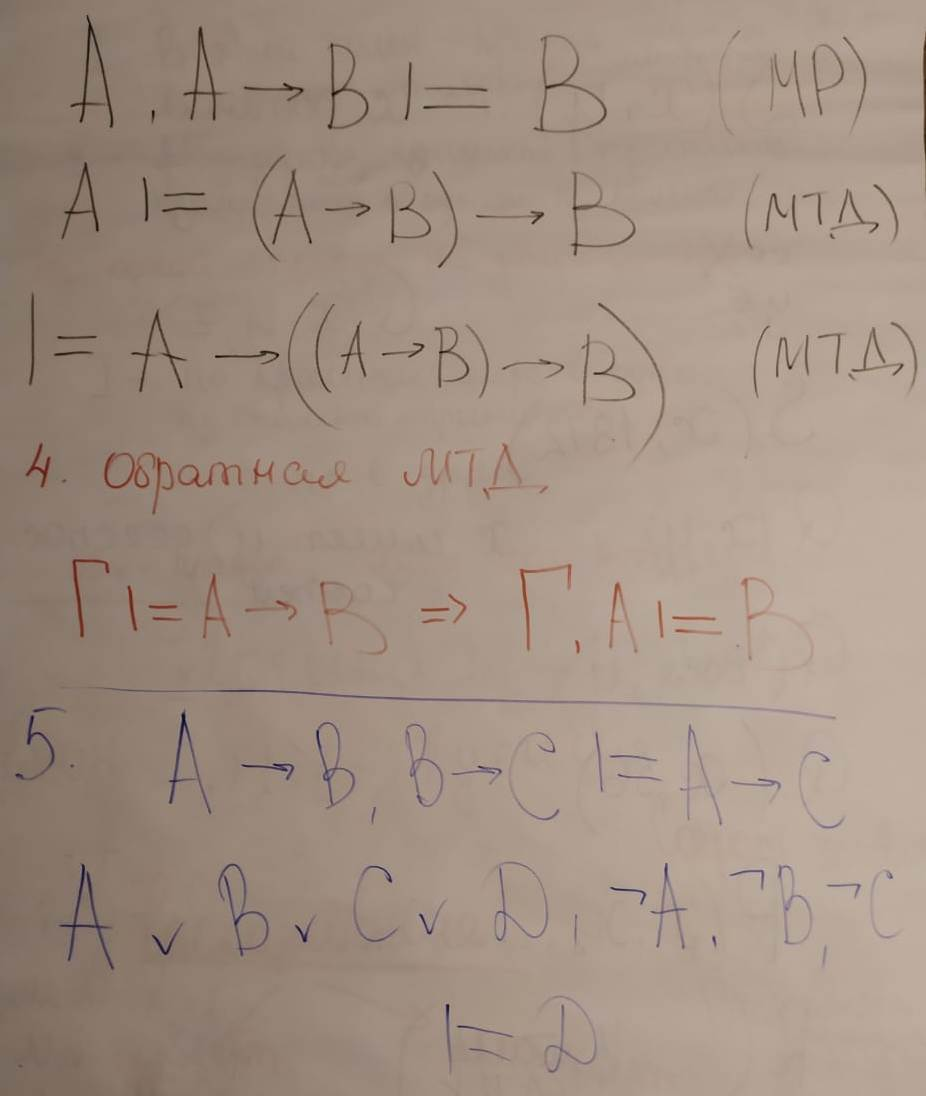 A, A → B |= B (MP)
A |= (A → B) → B (МТД)
|= A → ((A → B) → B) (МТД)
4. Обратная МТД
Γ |= A → B => Γ, A |= B
5. A → B, B → C |= A → C
A ∨ B ∨ C ∨ D, ¬A, ¬B, ¬C
|= D